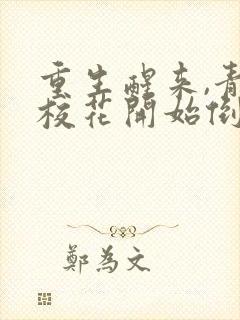 重生醒来,青
校花開始倒
鄭為文